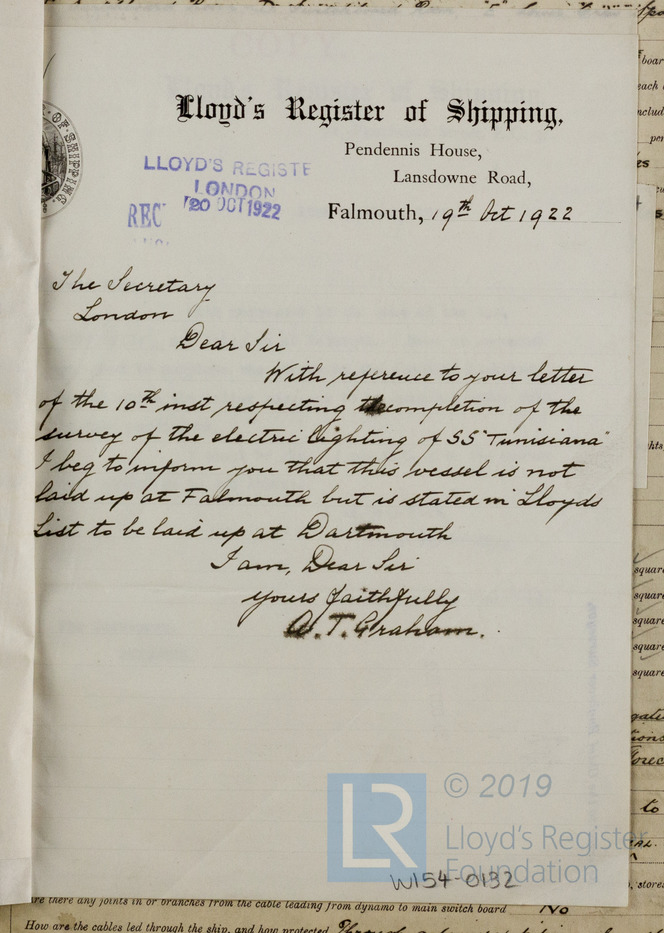 Lloyd's Register of Shipping,
Pendennis House,
Lansdowne Road,
Falmouth, 19th Oct 1922
OF SHIPPING
LLOYD'S REGISTE
LONDON
REC 20 OCT 1922
The Secretary
London
Dear Sir
With reference to your letter
of the 10th inst respecting the completion of the
survey of the electric lighting of SS "Tunisiana"
I beg to inform you that this vessel is not
laid up at Falmouth but is stated in Lloyds
List to be laid up at Dartmouth
I am, Dear Sir
yours faithfully
A. T. Graham.
LR
© 2019
Lloyd's Register
Foundation
W154-0132
are there any joints in or branches from the cable leading from dynamo to main switch board No
How are the cables led through the ship, and how protected
boar
each
includ
per
square
square
square
square
square
to
stores